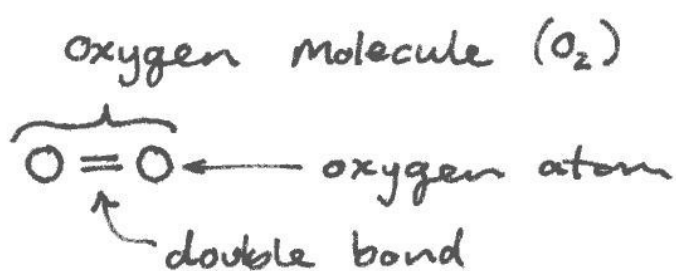 oxygen molecule (O₂)
O=O ← oxygen atom
double bond